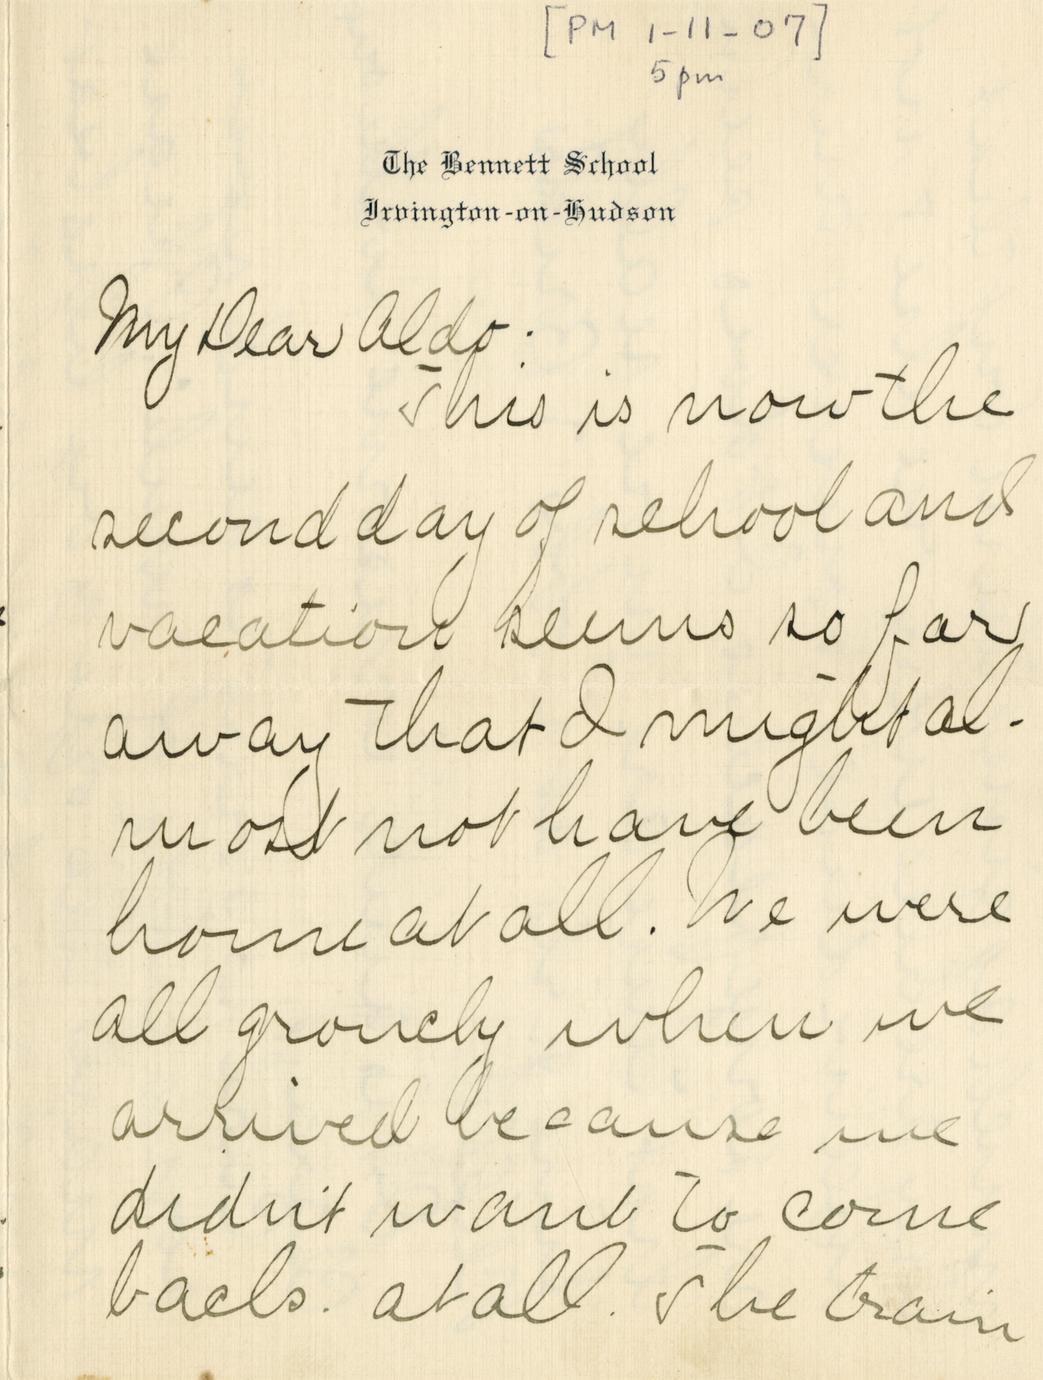 [PM 1-11-07]
5 pm
The Bennett School
Irvington-on-Hudson
My Dear Aldo:
This is now the
second day of school and
vacation seems so far
away that I might al-
most not have been
home at all. We were
all grouchy when we
arrived because we
didn't want to come
back. at all. The train